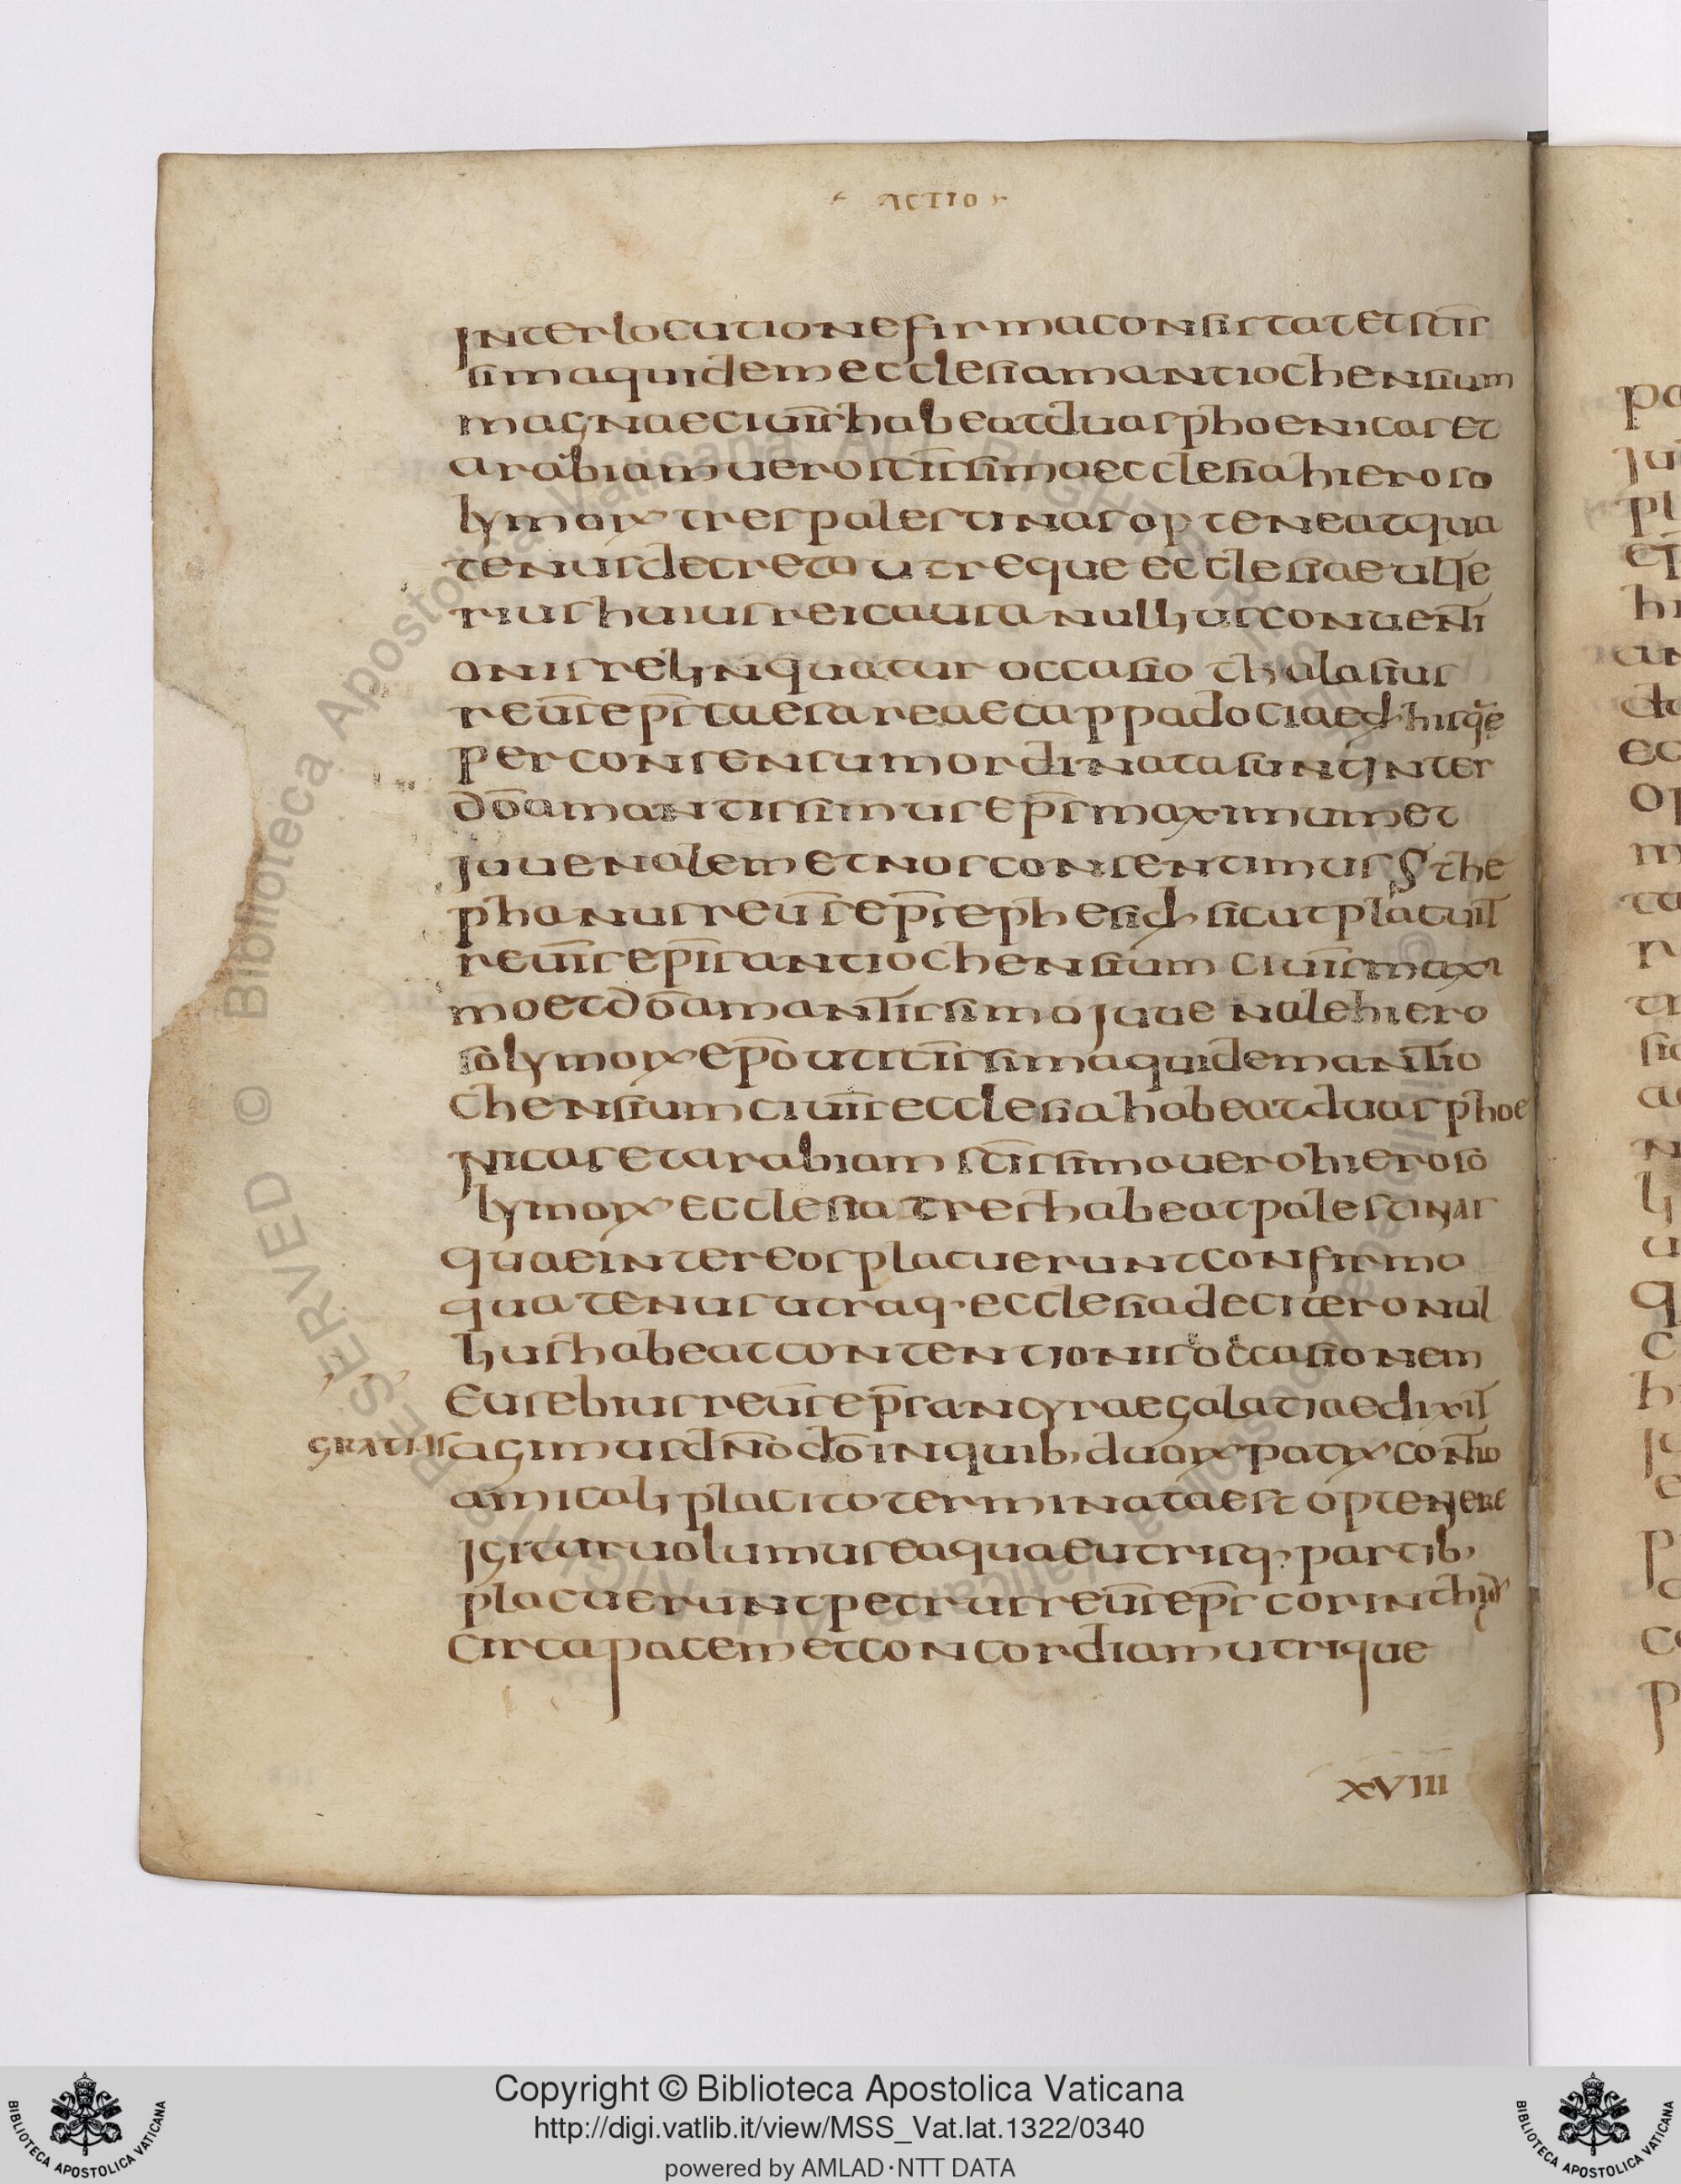 ACTIO
interlocutione firma consistat et sc̄is
sima quidem ecclesiam antiochensium
magnae civit̄s habeat duas phoenicas et
arabiam vero sc̄issima ecclesia hieroso
lymorꝝ tres palestinas opteneat qua
tenus decreto utreque ecclesiae ulte
rius huius rei causa nullius conventi
onis relinquatur occasio thalasius
rev̄s ep̄s caesareae cappadociae d his q̄e
per consensum ordinata sunt inter
d̄o amantissimus ep̄s maximum et
iuvenalem et nos consentimus sthe
phanus rev̄s ep̄s ephesi d sicut placuit
rev̄is ep̄is antiochensium civit̄s maxi
mo et d̄o amantissimo iuvenale hiero
solymorꝝ ep̄o ut sc̄issima quidem antio
chensium civit̄s ecclesia habeat duas phoe
nicas et arabiam sc̄issima vero hieroso
lymorꝝ ecclesia tres habeat palestinas
quae inter eos placuerunt confirmo
quatenus utraq· ecclesia de citero nul
lius habeat contentionis occasionem
Eusebius rev̄s ep̄s ancyrae galatiae dixit
gratias agimus dn̄o d̄o in quib, duorꝝ patrꝝ contio
amicali placito terminata est optenere
igitur volumus ea quae utrisq· partib,
placuerunt petrus rev̄s ep̄s corinthi d
circa pacem et concordiam utrique
XVIII
© Biblioteca Apostolica Vaticana ALL RIGHTS RESERVED
Copyright © Biblioteca Apostolica Vaticana
http://digi.vatlib.it/view/MSS_Vat.lat.1322/0340
powered by AMLAD·NTT DATA
BIBLIOTECA APOSTOLICA VATICANA
BIBLIOTECA APOSTOLICA VATICANA